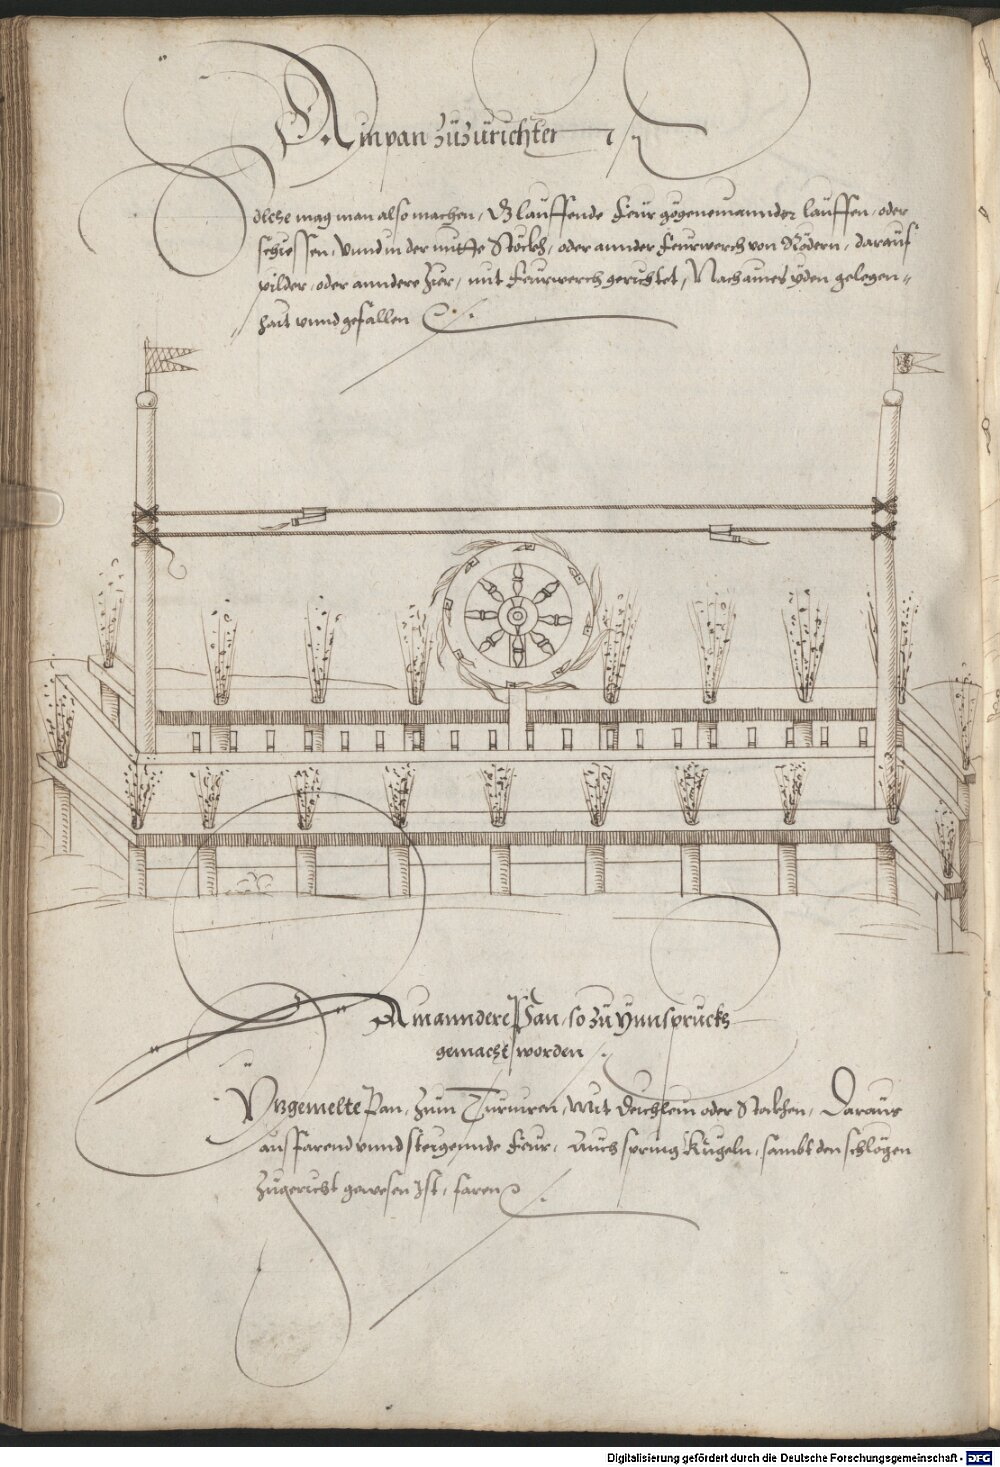 Ain pan zuzurichten
Solche mag man also machen, Das lauffende Feur gögen einannder lauffen, oder
schiessen, Unnd in der mitte Stöckh, oder annder Feurwerch von Rödern, darauf
pilder, oder anndere Zier, mit Feurwerch gerichtet, Nach aines yden gelegen-
hait unnd gefallen
Ain anndere Pan, so zu Ynnsprucks
gemacht worden
Obgemelte Pan, zum Turnieren, Mit Deichlein oder Stöckhen, Daraus
ausfarend unnd steigennde Feur, Auch spring Kugeln, sambt den schlögen
zugericht gewesen Ist,
Digitalisierung gefördert durch die Deutsche Forschungsgemeinschaft - DFG